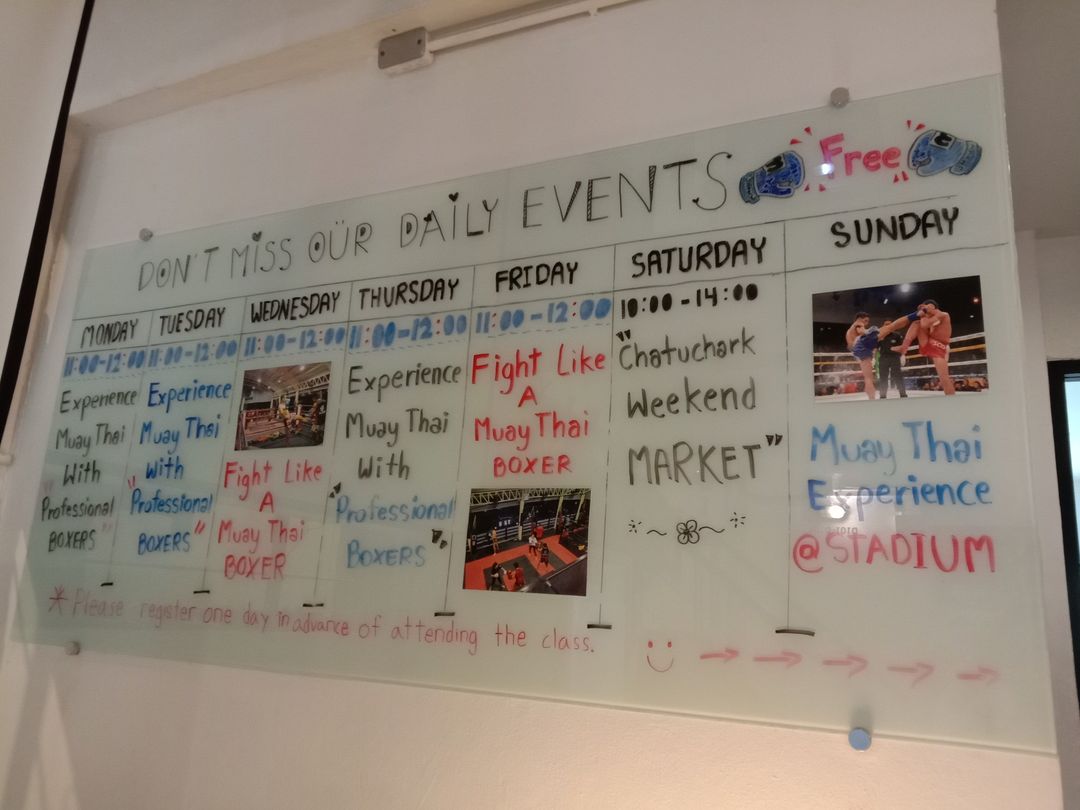 DON'T MISS OÜR DAILY EVENTS
Free
MONDAY
11:00-12:00
Experience
Muay Thai
With
"Professional
BOXERS"
TUESDAY
11:00-12:00
Experience
Muay Thai
with
"Professional
BOXERS"
WEDNESDAY
11:00-12:00
Fight Like
A
Muay Thai
BOXER
THURSDAY
11:00-12:00
Experience
Muay Thai
With
"Professional
BOXERS"
FRIDAY
11:00-12:00
Fight Like
A
Muay Thai
BOXER
SATURDAY
10:00-14:00
"Chatuchark
Weekend
MARKET"
SUNDAY
Muay Thai
Experience
@STADIUM
*Please register one day in advance of attending the class.